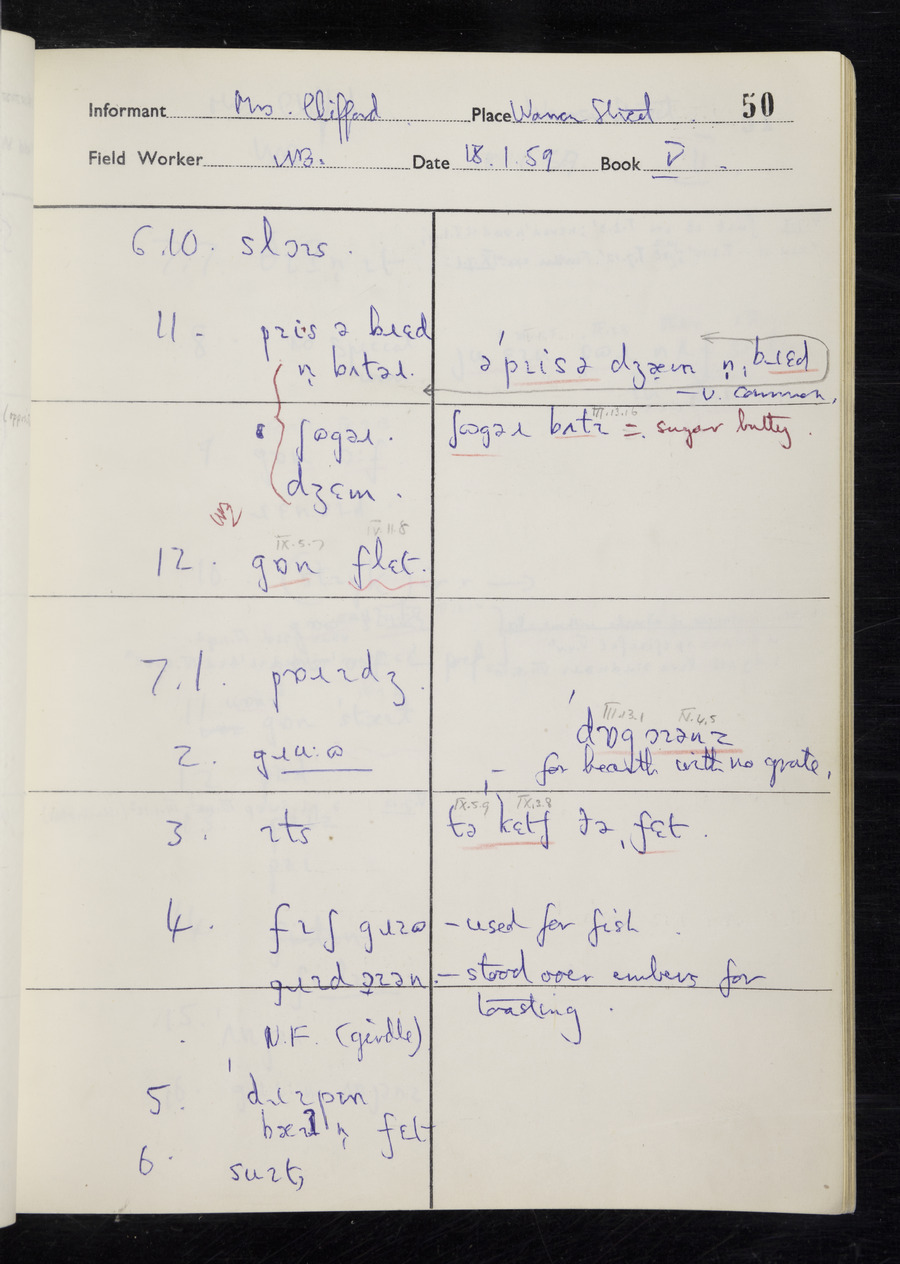 50
Informant Mrs. Clifford Place Warren Street
Field Worker Date 18.1.59 Book V
6.10. slɔɪs.
11 - piːs ə bɹɛd
n̩ bʌtəɹ.
ə'pɪisə dʒæm n̩, bɹɛd
– v. common,
ʃʊgəɹ.
ʃʊgəɹ bʌtɪ = sugar butty.
III.13.16
dʒɛm.
IX.5.7 IV.11.8
12. gɒn flɛt.
7.1. pɒɹɪdʒ.
2.
'dɒg ɔɪənz
III.13.1 IV.4.5
– for hearth with no grate,
3. ɪts
tə 'kɛtʃ ðə ˌfɛt.
IX.5.9 IX.2.8
4. fɪʃ – used for fish.
– stood over embers for
toasting.
N.F. (girdle)
5. 'dɹɪpɪn
n̩ fɛt
6.